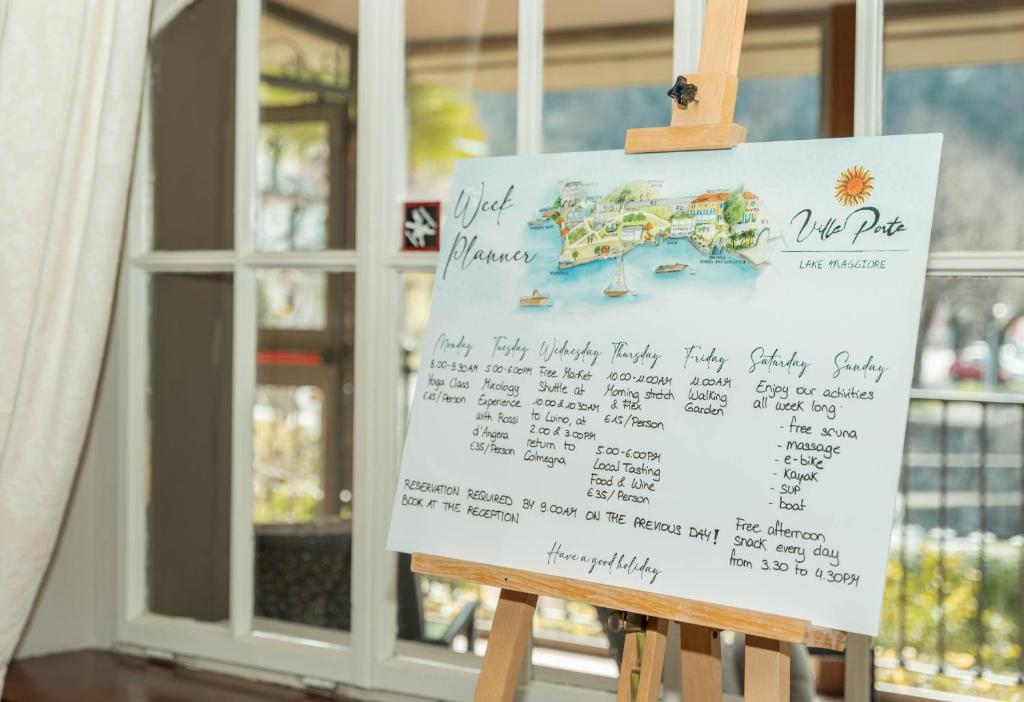 Week
Planner
Villa Porta
LAKE MAGGIORE
Monday
8.00-9.30AM
Yoga Class
€15/Person
Tuesday
5.00-6.00PM
Mixology
Experience
with Rossi
d'Angera
€35/Person
Wednesday
Free Market
Shuttle at
10.00 & 10.30AM
to Luino, at
2.00 & 3.00PM
return to
Colmegna
Thursday
10.00-11.00AM
Morning stretch
& Flex
€15/Person
5.00-6.00PM
Local Tasting
Food & Wine
€35/Person
Friday
11.00AM
Walking
Garden
Saturday Sunday
Enjoy our activities
all week long:
- free sauna
- massage
- e-bike
- Kayak
- SUP
- boat
Free afternoon
snack every day
from 3.30 to 4.30PM
RESERVATION REQUIRED BY 9.00AM ON THE PREVIOUS DAY!
BOOK AT THE RECEPTION
Have a good holiday